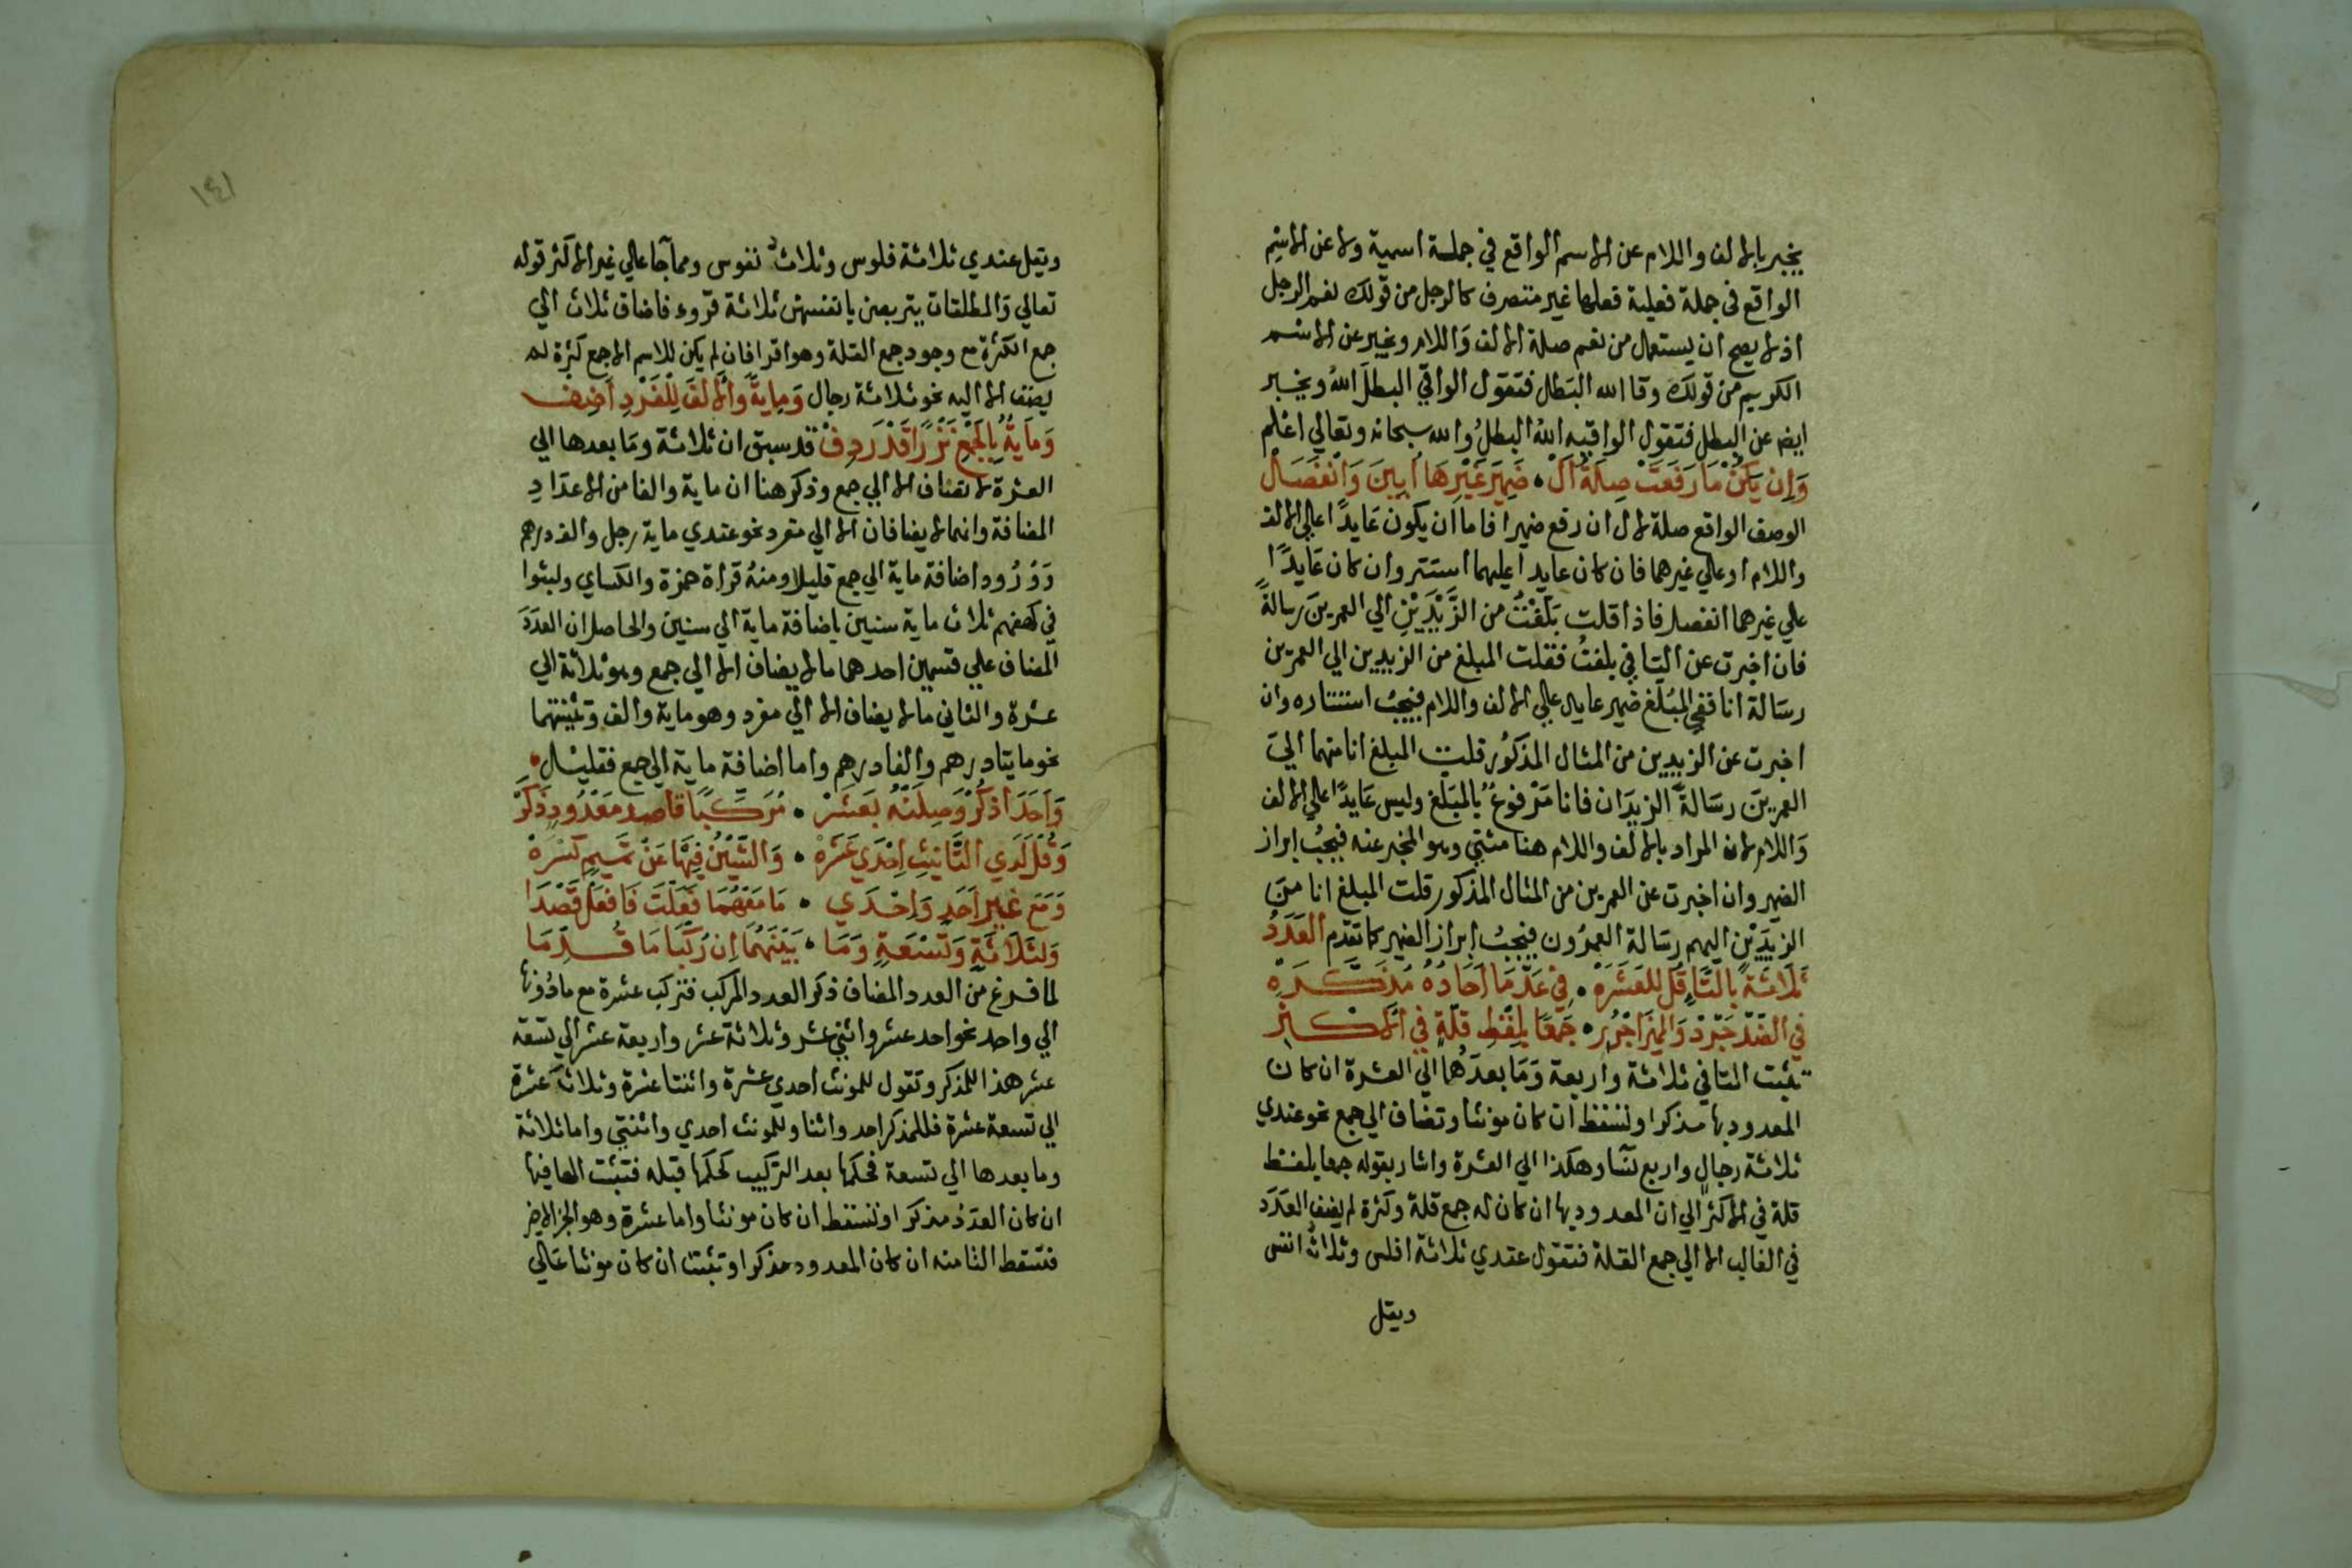 يخبر بالالف واللام عن الاسم الواقع في جملة اسمية ولا عن الاسم
الواقع في جملة فعلية فعلها غير متصرف كالرجل من قولك نعم الرجل
اذ لا يصح ان يستعمل من نعم صلة الالف وَاللام ويخبر عن الاسم
الكريم من قولك وقا الله البَطل فتقول الواقي البطلَ اللهُ ويخبر
ايضا عن البطل فتقول الواقيه اللهُ البطلُ والله سبحانه وتعالي اعلم
وَاِن يَكُنْ مَا رَفَعَتْ صِلَةُ اَلْ • ضَمِيَر غَيْرِهَا اُبِينَ وَانْفَصَلْ
الوصف الواقع صلة لال ان رفع ضميرا فاما ان يكون عَايدًا علي الالف
واللام او علي غيرهما فان كان عايدا عليهما استتر وان كان عَايدًا
علي غيرهما انفصل فاذا قلت بَلّغْتُ من الزَّيْدَيْنِ الي العمرينَ رسالةً
فان اخبرت عن التا في بلغتُ فقلت المبلغ من الزيدين الي العمرين
رسَالة انا ففي المُبَلّغ ضمير عايد علي الالف واللام فيجبُ استتاره وان
اخبرت عن الزيدين من المثال المذكوُر قلت المبلغ انا منهما اليَ
العمرينَ رسَالةً الزيدَان فانا مَرْفوعُ بالمبَلغ وليس عَايدًا علي الالف
وَاللام لان المراد بالالف واللام هنا مثني وهو المخبر عنه فيجبُ ابراز
الضمير وان اخبرت عن العمرين من المثال المذكور قلت المبلغ انا منَ
الزيدَيْنِ اليهم رسَالة العمرُون فيجبُ ابراز الضمير كما تقدم العَدَدُ
ثَلَاثَة بِالتَّاءِ قُل لِلعَشَرَهْ • فِي عَدّ مَا اَحَادُهُ مُذَكَّرَهْ
في الضّدِ جَرّدْ وَالمُمَيّزَ اجْرُرِ • جَمْعًا بِلَفْظِ قلّةٍ في الاكْثَرِ
تثبت التا في ثلاثة واربعة وَمَا بعدَهُما الي العشرة ان كان
المعدود بها مذكرا وتسقط ان كان مونثا وتضاف الي جمع نحو عندي
ثلاثة رجالٍ واربع نسَا وهكذا الي العشرة واشار بقوله جمعا بلفظ
قلة في الاكثر الي ان المعدود بها ان كان له جمع قلة وكثرة لم يضف العَدَد
في الغالب الا الي جمع القلة فتقول عندي ثلاثة افلس وثلاثُ انفس
ويقل
١٤١
ويقل عندي ثلاثة فلوس وثلاث نفوس ومما جا علي غير الاكثر قوله
تعالي وَالمطلقات يتربصن بانفسهن ثلاثة قرُوء فاضاف ثلاث الي
جمع الكثرة مع وجود جمع القلة وهو اقرا فان لم يكن للاسم الا جمع كثرة له
يضف الا اليه نحو ثلاثة رجال وَمِايةً وَالْاَلفَ لِلْفَرْدِ اَضِف
وَمَايَةٌ بِالجَمْعِ نَزْرًا قَدْ رُدِفْ قد سبق ان ثلاثة ومَا بعدها الي
العشرة لا تضاف الا الي جمع وذكر هنا ان ماية والفا من الاعدَادِ
المضافة وانما لا يضافان الا الي مفرد نحو عندي ماية رجل والف درهم
وَوُرُود اضافة ماية الي جمع قليلا ومنهُ قراة حمزة والكساي ولبثوا
في كهفهم ثلاث ماية سنين باضافة ماية الي سنين والحاصل ان العدَدَ
المضاف علي قسمين احدهما ما لا يضاف الا الي جمع وهو ثلاثة الي
عشرة والثاني ما لا يضاف الا الي مفرد وهو ماية والف وتثنيتهما
نحو مايتا درهم والفا درهم واما اضافة ماية الي جمع فقليل
وَاَحَدَ اذكُرْ وَصِلَنْهُ بَعَشَرْ • مُرَكَّبًا قاصدِ مَعْدُودٍ ذَكَرْ
وَقُلْ لَدَي التَّانيثِ اِحْدَي عَشَرْهْ • وَالشِّيْنُ فِيْهَا عَنْ تَمِيمٍ كَسْرَهْ
وَمَعَ غَيِر اَحَدٍ وَاِحْدَي • مَا مَعْهُمَا فَعَلْتَ فَافعَلْ قَصْدَا
وَلثَلَاثَةٍ وَتسْعَةٍ وَمَا • بَيْنَهُمَا اِن رُكِّبَا مَا قُدِّمَا
لما فرغ من العدد المضاف ذكر العدد المركب فتركب عشرة مع مادُونها
الي واحد نحو احد عشر واثني عشر وثلاثة عشر واربعة عشر الي تسعة
عشر هذا للمذكر وتقول للمونث احدي عشرة واثنتا عشرة وثلاث عَشرة
الي تسعة عشرة فللمذكر احد واثنا وللمونث احدي واثنتي واما ثلاثة
وما بعدها الي تسعة فحكمها بعد التركيب كحكمها قبله فتثبت الها فيها
ان كان العدَدُ مذكرا وتسقط ان كان مونثا واما عشرة وهو الجز الاخير
فتسقط التا منه ان كان المعدود مذكرا وتثبت ان كان مونثا عَلَي